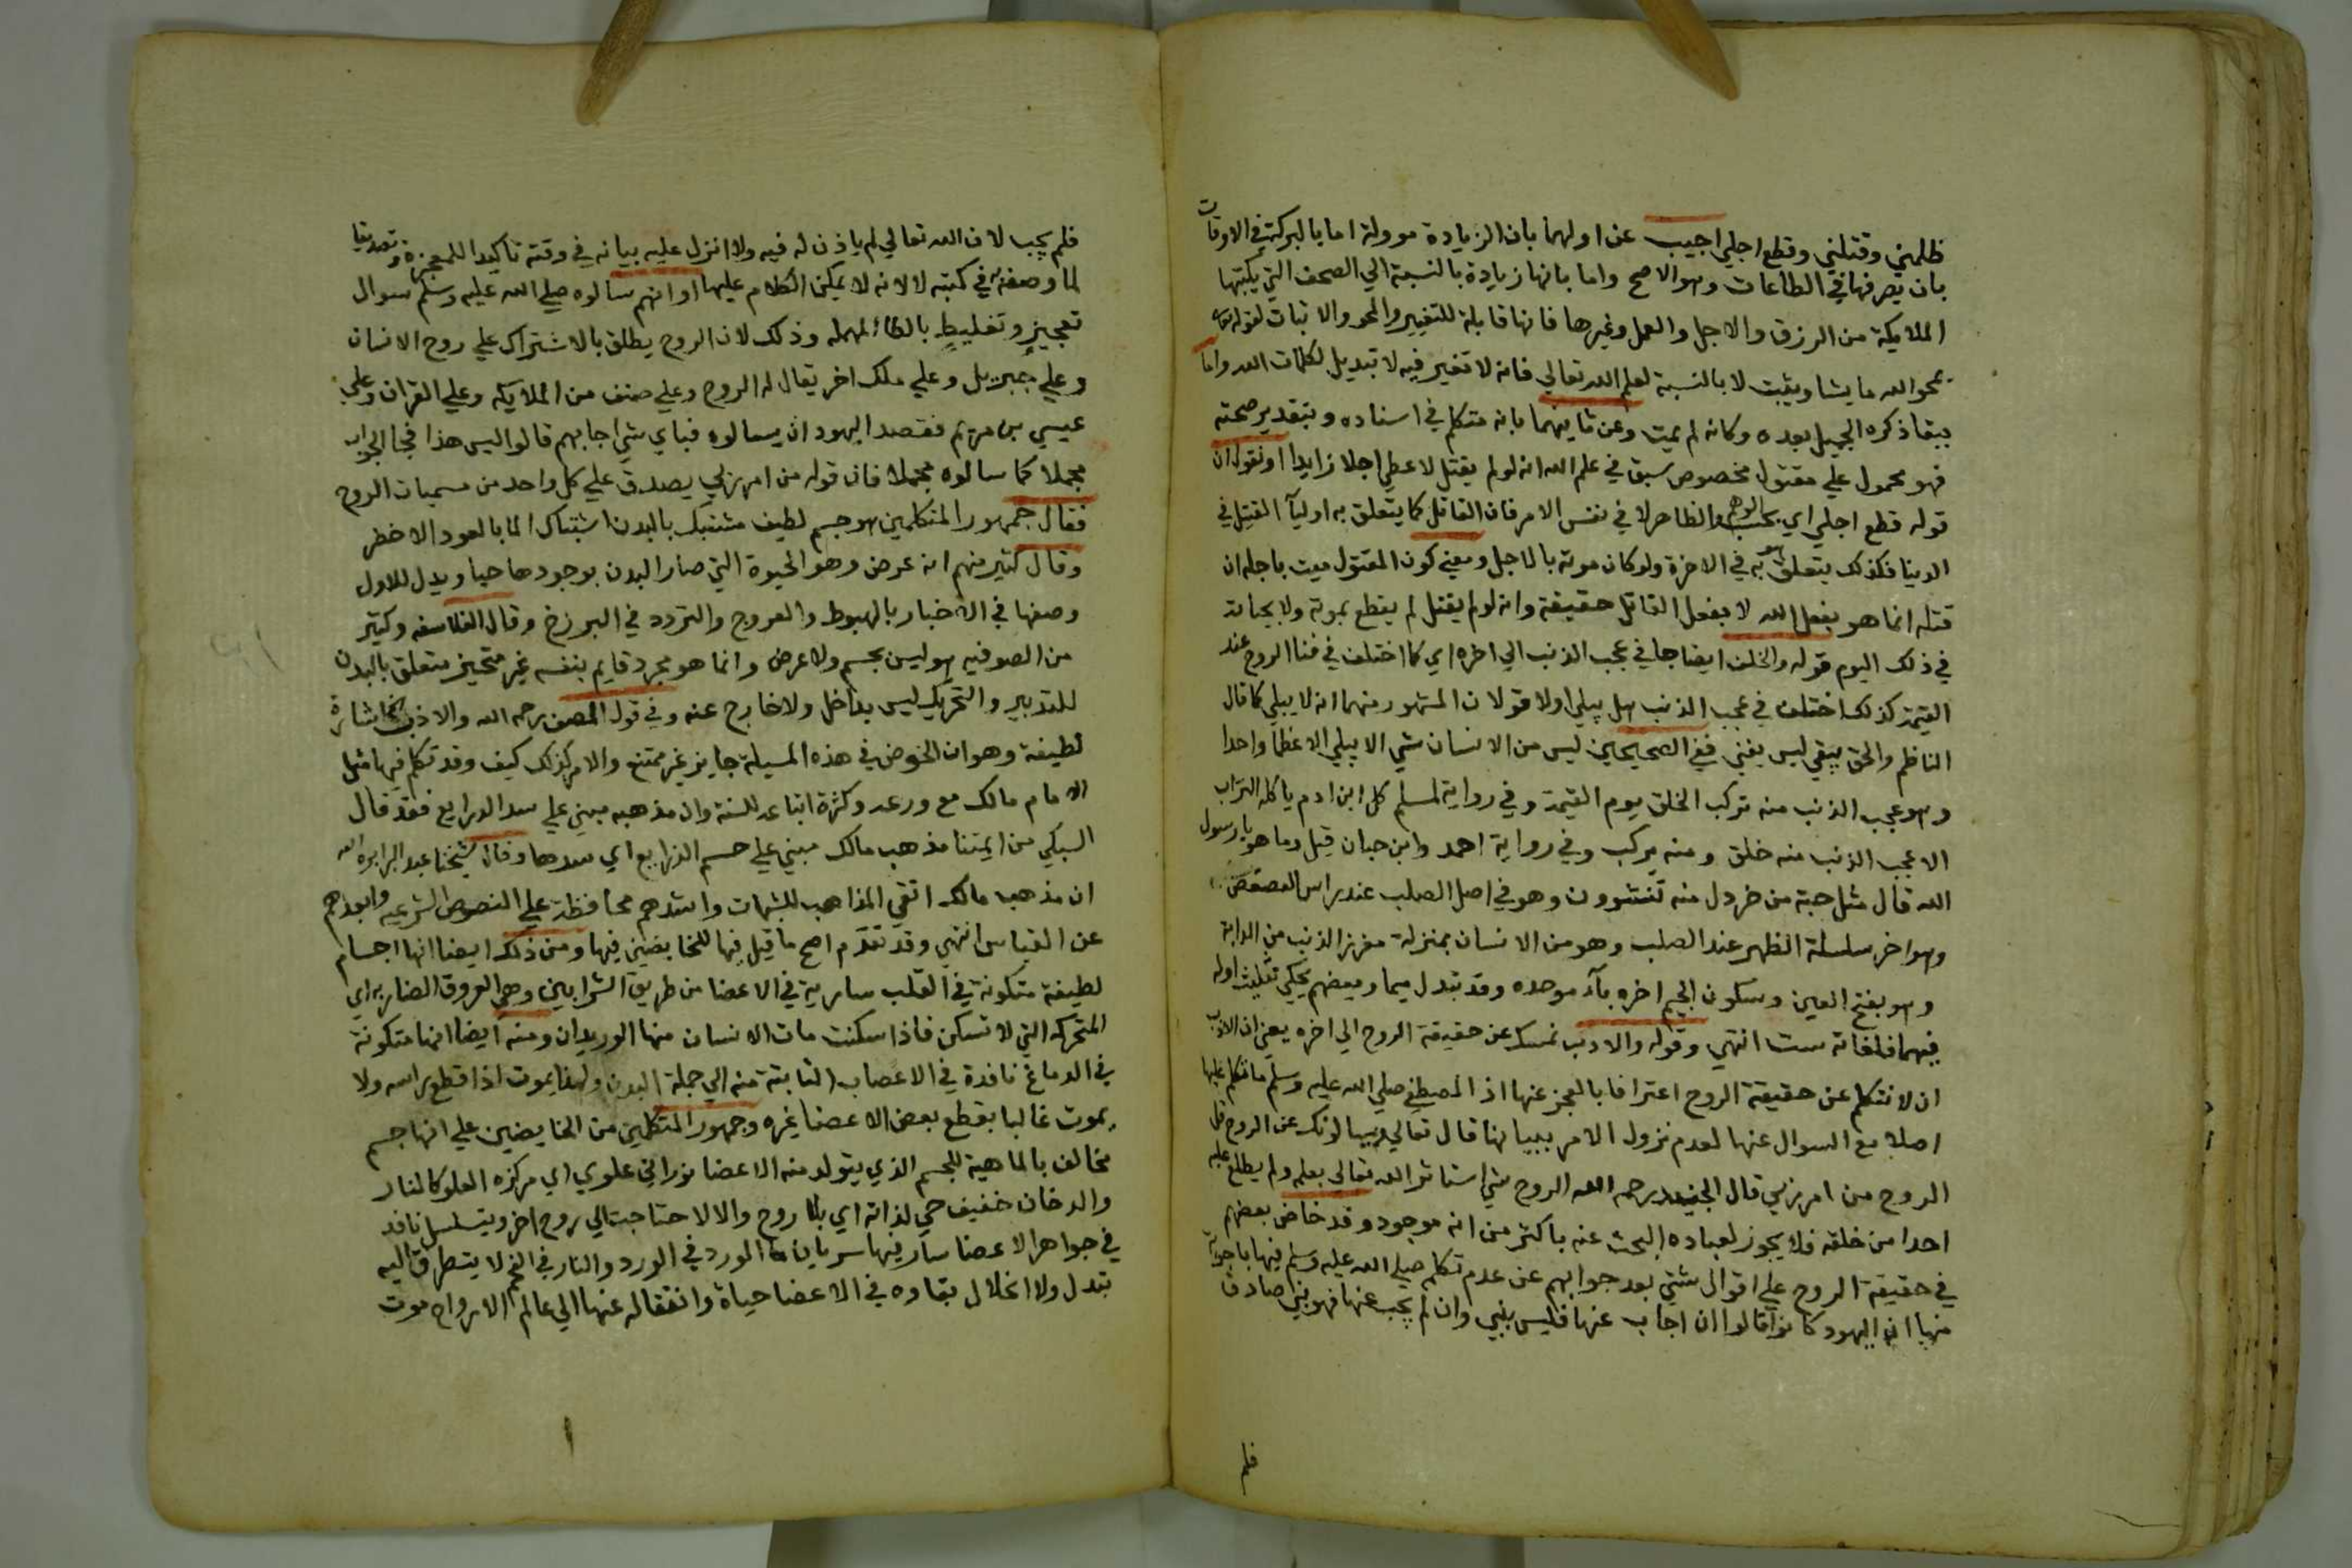 ظلمني وقتلني وقطع اجلي اجيب عن اولهما بان الزيادة موولة اما بالبركة في الاوقات
بان يصرفها في الطاعات وهو الاصح واما بانها زيادة بالنسبة الي الصحف التي يكتبها
الملايكة من الرزق والاجل والعمل وغيرها فانها قابلة للتغيير والمحو والاثبات لقوله تعالى
يمحو الله ما يشا ويثبت لا بالنسبة لعلم الله تعالي فانه لا تغير فيه لا تبديل لكلمات الله واما
ببقا ذكره الجميل بعده وكانه لم يمت وعن ثانيهما بانه متكلم في اسناده وبتقدير صحته
فهو محمول علي مقتول مخصوص سبق في علم الله انه لو لم يقتل لاعطي اجلا زايدا او نقول ان
قوله قطع اجلي اي بحسب الوهم والظاهر لا في نفس الامر فان القاتل كما يتعلق به اوليآ القتيل في
الدنيا فكذلك يتعلق هو به في الاخرة ولو كان موته بالاجل ومعني كون المقتول ميت باجله ان
قتله انما هو بفعل الله لا بفعل القاتل حقيقة وانه لو لم يقتل لم يقطع بموته ولا بحياته
في ذلك اليوم قوله والخلف ايضا جا في عجب الذنب الي اخره اي كما اختلف في فنا الروح عند
القيمة كذلك اختلف في عجب الذنب هل يبلي اولا قولان المشهور منهما انه لا يبلي كما قال
الناظم والحق يبقي ليس يفني ففي الصحيحين ليس من الانسان شي الا يبلي الا عظما واحدا
وهو عجب الذنب منه تركب الخلق يوم القيمة وفي رواية لمسلم كل ابن ادم ياكله التراب
الا عجب الذنب منه خلق ومنه يركب وفي رواية احمد وابن حبان قيل وما هو يا رسول
الله قال مثل حبة من خردل منه تنشوون وهو في اصل الصلب عند راس العصعص
وهو اخر سلسلة الظهر عند الصلب وهو من الانسان بمنزلة مغرز الذنب من الدابة
وهو بفتح العين وسكون الجيم اخره بآء موحده وقد تبدل ميما وبعضهم يحكي تثليث اوله
فيهما فلغاته ست انتهي وقوله والادب نمسك عن حقيقة الروح الي اخره يعني ان الادب
ان لا نتكلم عن حقيقة الروح اعترافا بالعجز عنها اذ المصطفي صلي الله عليه وسلم ما تكلم عليها
اصلا مع السوال عنها لعدم نزول الامر ببيانها قال تعالي ويسالونك عن الروح قل
الروح من امر ربي قال الجنيد رحمه الله الروح شي استاثر الله تعالى بعلمه ولم يطلع عليه
احدا من خلقه فلا يجوز لعباده البحث عنه باكثر من انه موجود وقد خاض بعضهم
في حقيقة الروح علي اقوال شتي بعد جوابهم عن عدم تكلم صلي الله عليه وسلم فيها باجوبة
منها ان اليهود كانوا قالوا ان اجاب عنها فليس بنبي وان لم يجب عنها فهو نبي صادق
فلم
فلم يجب لان الله تعالي لم ياذن له فيه ولا انزل عليه بيانه في وقته تاكيدا للمعجزة وتصديقا
لما وصفه في كتبه لا لانه لا يمكن الكلام عليها او انهم سالوه صلي الله عليه وسلم سوال
تعجيز وتغليط بالطا المهمله وذلك لان الروح يطلق بالاشتراك علي روح الانسان
وعلي جبريل وعلي ملك اخر يقال له الروح وعلي صنف من الملايكه وعلي القران وعلي
عيسي بن مريم فقصد اليهود ان يسالوه فباي شي اجابهم قالوا ليس هذا فجا الجواب
مجملا كما سالوه مجملا فان قوله من امر ربي يصدق علي كل واحد من مسميات الروح
فقال جمهور المتكلمين هو جسم لطيف مشتبك بالبدن اشتباك الما بالعود الاخضر
وقال كثير منهم انه عرض وهو الحيوة التي صار البدن بوجودها حيا ويدل للاول
وصفها في الاخبار بالهبوط والعروج والتردد في البرزخ وقال الفلاسفه وكثير
من الصوفيه هو ليس بجسم ولا عرض وانما هو مجرد قايم بنفسه غير متحيز متعلق بالبدن
للتدبير والتحريك ليس بداخل ولا خارج عنه وفي قول المصنف رحمه الله والادب الخ اشارة
لطيفة وهو ان الخوض في هذه المسيلة جايز غير ممتنع والامر كذلك كيف وقد تكلم فيها مثل
الامام مالك مع ورعه وكثرة اتباعه للسنة وان مذهبه مبني علي سد الذرايع فقد قال
السبكي من ايمتنا مذهب مالك مبني علي حسم الذرايع اي سدها وقال شيخنا عبد البر رحمه الله
ان مذهب مالك اتقي المذاهب للشبهات واشدهم محافظة علي النصوص الشرعيه وابعدهم
عن القياس انتهي وقد تقدم اصح ما قيل فيها للخايضين فيها ومن ذلك ايضا انها اجسام
لطيفة متكونة في القلب سارية في الاعضا من طريق الشرايين وهي العروق الضاربه اي
المتحركه التي لا تسكن فاذا سكنت مات الانسان منها الوريدان ومنه ايضا انها متكونة
في الدماغ نافدة في الاعصاب الثابتة منه الي جملة البدن ولهذا يموت اذا قطع راسه ولا
يموت غالبا بقطع بعض الاعضا غيره وجمهور المتكلمين من الخايضين علي انها جسم
مخالف بالماهية للجسم الذي يتولد منه الاعضا نوراني علوي اي مركزه العلو كالنار
والدخان خفيف حي لذاته اي بلا روح والا لاحتاجت الي روح اخر ويتسلسل نافد
في جواهر الاعضا سار فيها سريان ما الورد في الورد والنار في الفحم لا يتطرق اليه
تبدل ولا انحلال بقاوه في الاعضا حياة وانتقاله عنها الي عالم الارواح موت